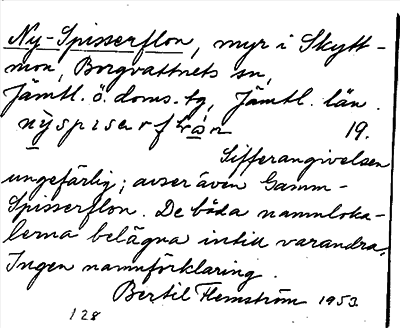 Ny-Spisserflon, myr i Skytt-
mon, Borgvattnets sn,
Jämtl. ö. doms. tg, Jämtl. län.
19.
Sifferangivelsen
ungefärlig; avser även Gamm-
Spisserflon. De båda namnloka-
lerna belägna intill varandra.
Ingen namnförklaring.
Bertil Flemström 1953
128